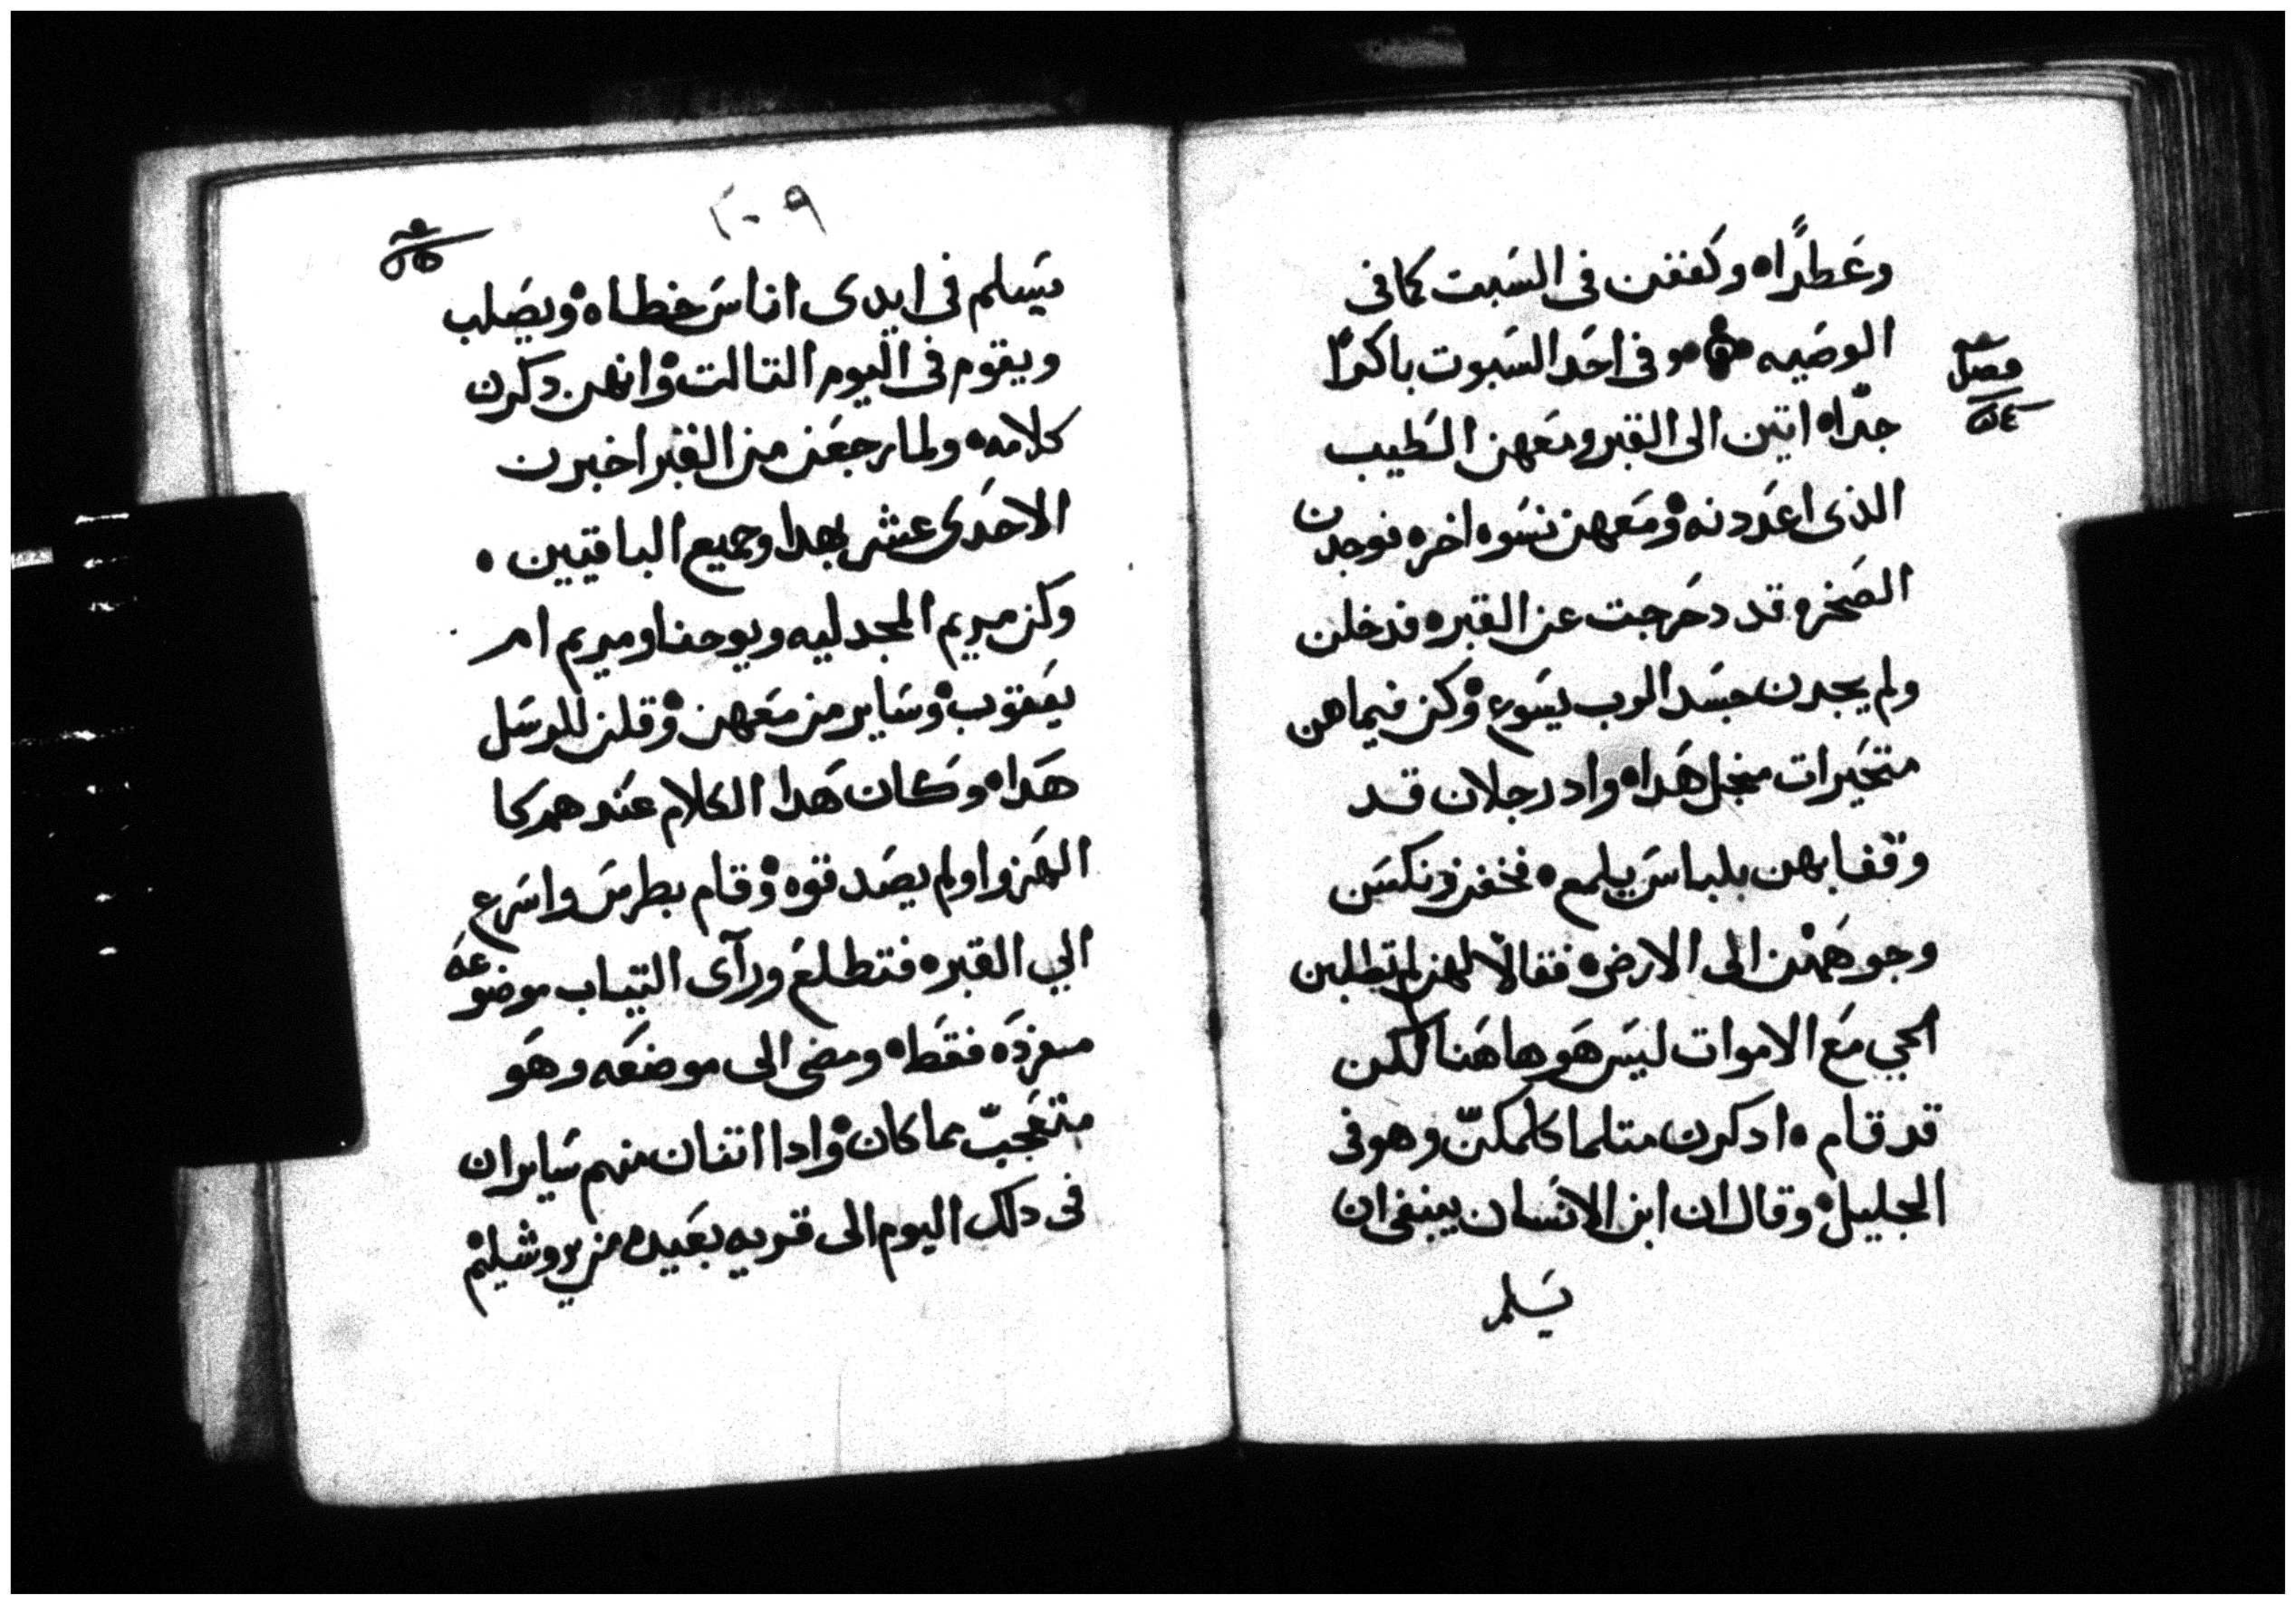 وعَطرًا ه وكففن فى السَبت كما فى
الوصَيه ه و فى احَد السَبوت باكرًا
فصل
٥٤
جدّا ه اتين الى القبر ومعَهن الطيب
الذى اعَددنه ه ومَعهن نسَوه اخره فوجدن
الصَخره قد دحَرجت عن القبر ه فدخلن
ولم يجدن جسَد الرب يسَوع ه وكن فيما هن
متحَيرات منجل هَدا ه واد رجلان قد
وقفا بهن بلباسَ يلمع ه فخفن ونكسَن
وجوهَهن الى الارض ه فقالا لهن لم تطلبن
الحي مَع الاموات ليسَ هَو هاهَنا لكن
قد قام ه ادكرن متلما كلمكنّ وهو فى
الجليل ه وقال ان ابن الانسَان ينبغى ان
يسَلم
٢٠٩
يسَلم فى ايدى اناسَ خطاه ه ويصَلب
ويقوم فى اليوم التالت ه وانهن دكرن
كلامه ه ولما رجعَن من القبر اخبرن
الاحَدى عشر بهدا وجميع الباقيين ه
وكن مريم المجدليه ويوحنا ومريم ام
يعَقوب ه وسَاير من مَعهن ه وقلن للرسَل
هَدا ه وكان هَدا الكلام عَندهم كا
الهَزوا ولم يصَدقوه ه وقام بطرسَ واسَرع
الي القبر ه فتطلعَ ورآى التياب موضوعَه
مفردَه فقَط ه ومضى الى موضعَه وهَو
متعَجبّ مما كان ه وادا اتنان منهم سَايران
فى دلك اليوم الى قريه بعَيده من يروشليم